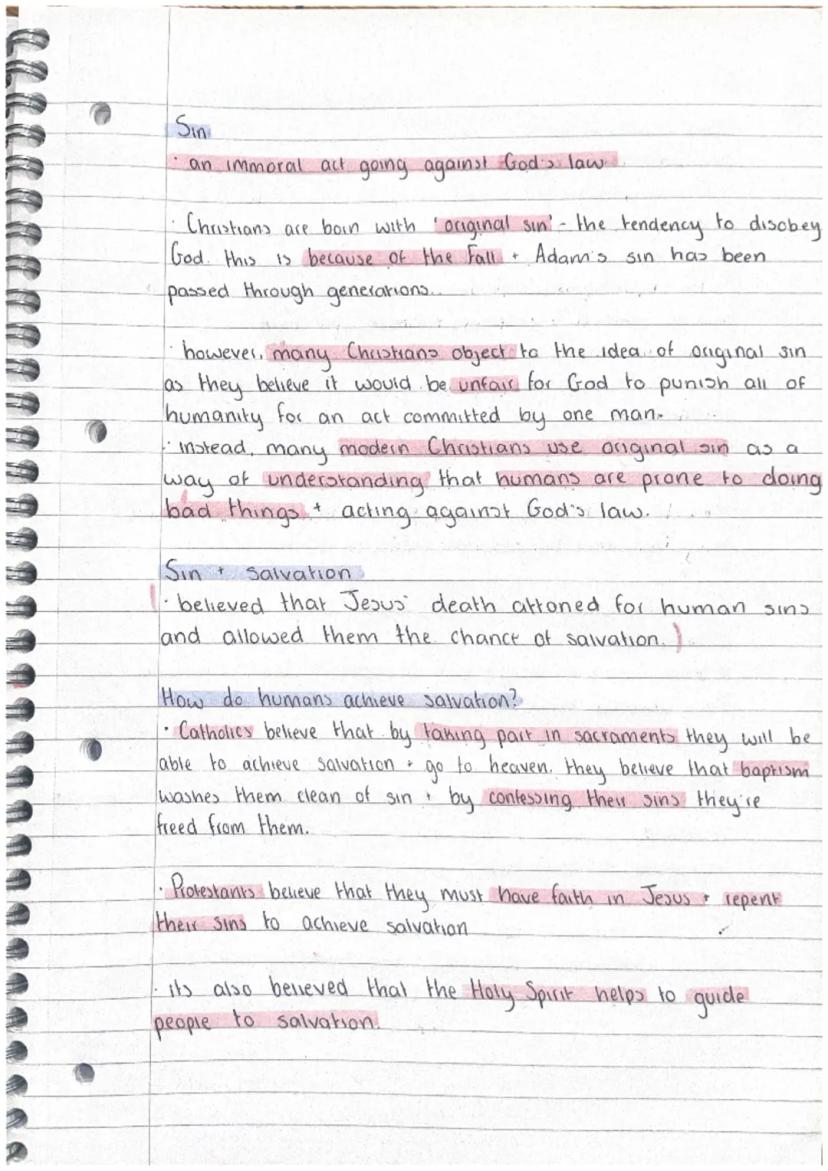 Sin
· an immoral act going against God's law
· Christians are born with 'original sin' - the tendency to disobey
God. this is because of the Fall + Adam's sin has been
passed through generations.
· however, many Christians object to the idea of original sin
as they believe it would be unfair for God to punish all of
humanity for an act committed by one man.
· instead, many modern Christians use original sin as a
way of understanding that humans are prone to doing
bad things, + acting against God's law.
Sin + salvation
· believed that Jesus' death attoned for human sins
and allowed them the chance of salvation.
How do humans achieve salvation?
· Catholics believe that by taking part in sacraments they will be
able to achieve salvation + go to heaven. they believe that baptism
washes them clean of sin + by confessing their sins they're
freed from them.
· Protestants believe that they must have faith in Jesus + repent
their sins to achieve salvation
· its also believed that the Holy Spirit helps to guide
people to salvation.